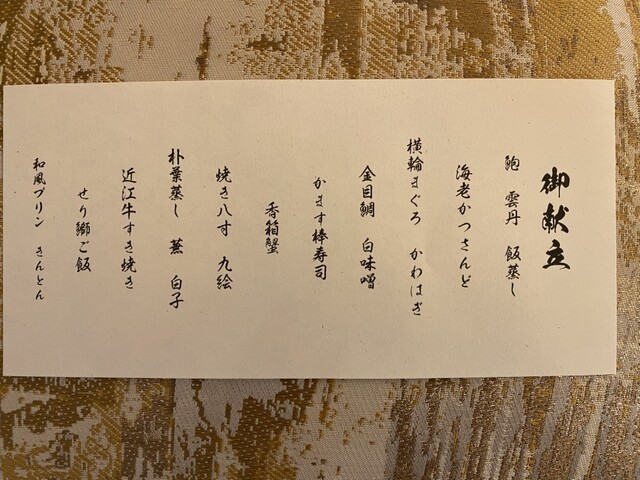 御献立
鮑 雲丹 飯蒸し
海老かつさんど
横輪まぐろ かわはぎ
金目鯛 白味噌
かます棒寿司
香箱蟹
焼き八寸 九絵
朴葉蒸し 蕪 白子
近江牛すき焼き
せり郷ご飯
和風プリン きんとん